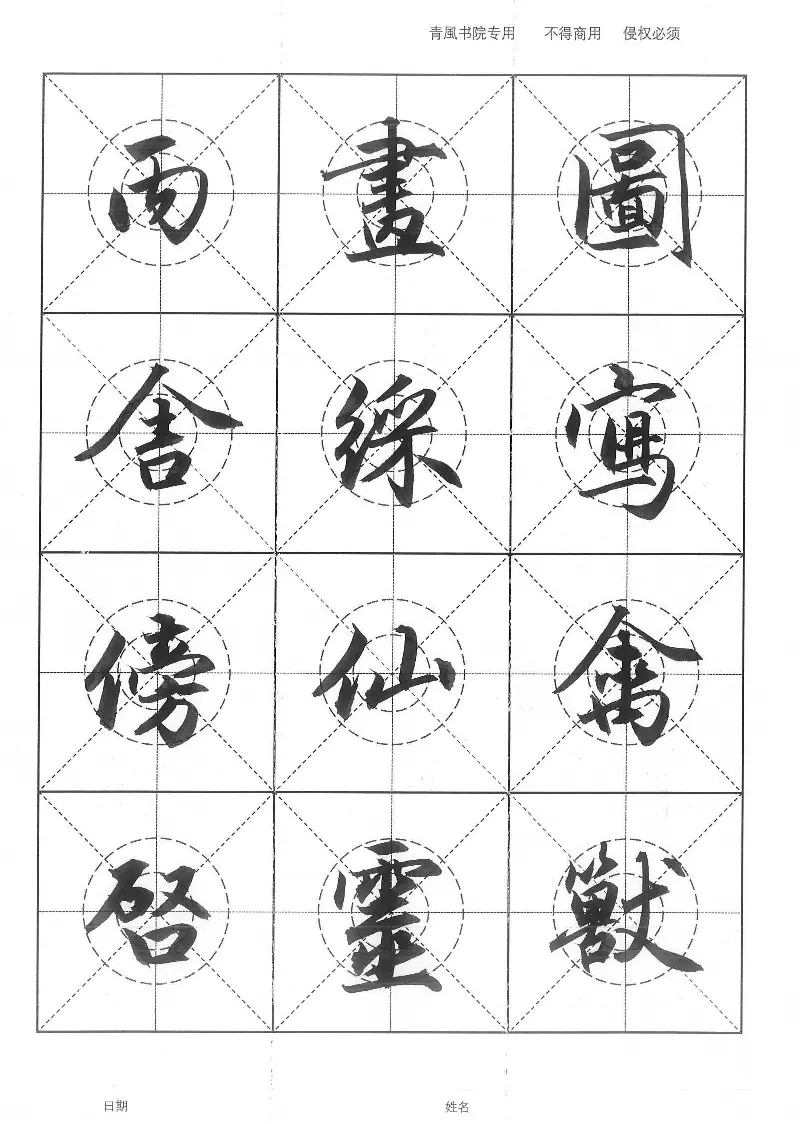 青風书院专用 不得商用 侵权必须
圖寫禽獸
畫綵仙靈
丙舍傍啓
日期 姓名